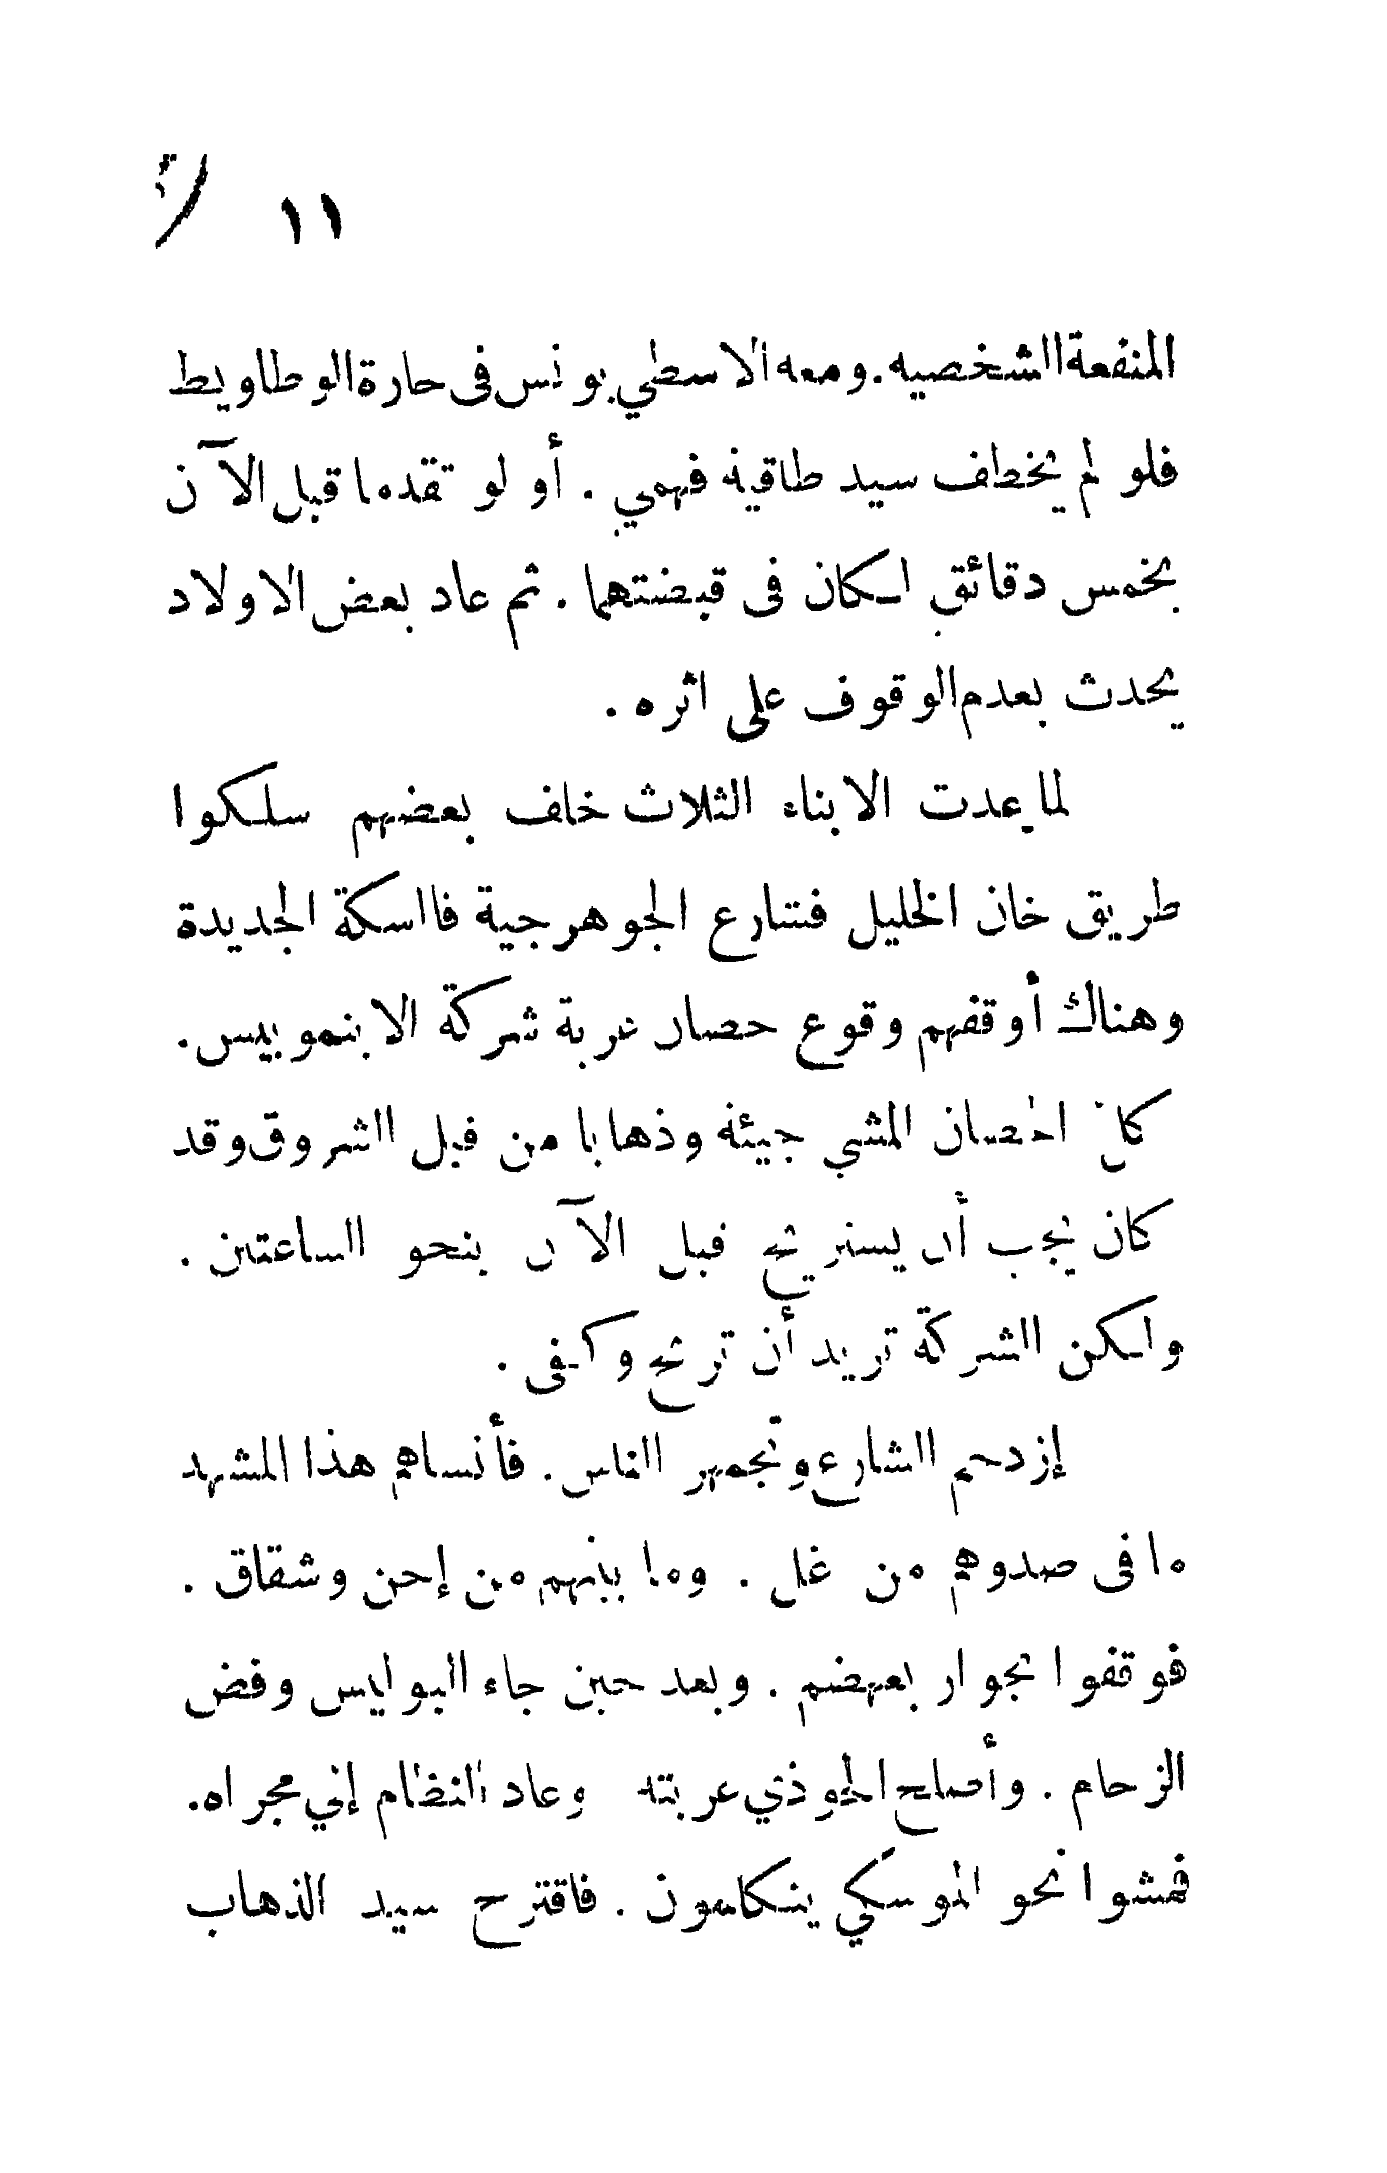 ١١
المنفعة الشخصيه. ومعه الاسطي يونس فى حارة الوطاويط
فلو لم يخطف سيد طاقية فهمي . أو لو تقدما قبل الآن
بخمس دقائق لكان فى قبضتهما . ثم عاد بعض الاولاد
يحدث بعدم الوقوف على اثره .
لما عدت الابناء الثلاث خلف بعضهم سلكوا
طريق خان الخليل فشارع الجوهرجية فالسكة الجديدة
وهناك أوقفهم وقوع حصان عربة شركة الابنموبيس.
كان الحصان المشي جيئة وذهابا من قبل الشروق وقد
كان يجب أن يستريح قبل الآن بنحو الساعتين .
ولكن الشركة تريد أن تربح وكفى .
إزدحم الشارع وتجمهر الناس. فأنساهم هذا المشهد
ما فى صدوهم من غل . وما بينهم من إحن وشقاق .
فوقفوا بجوار بعهضم . وبعد حين جاء البوليس وفض
الزحام . وأصلح الحوذي عربته وعاد النظام إلي مجراه.
فمشوا نحو الموسكي يتكلمون . فاقترح سيد الذهاب